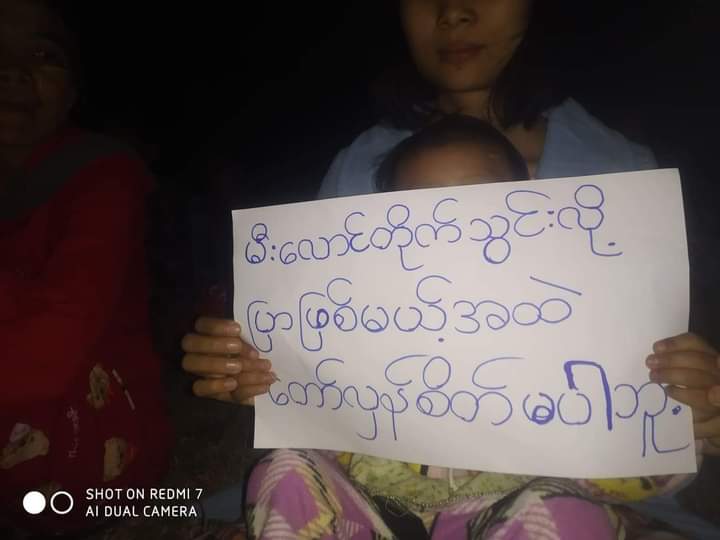 မီးလောင်တိုက်သွင်းလို့
ပြာဖြစ်မယ့်အထဲ
တော်လှန်စိတ်မပါဘူး
SHOT ON REDMI 7
AI DUAL CAMERA